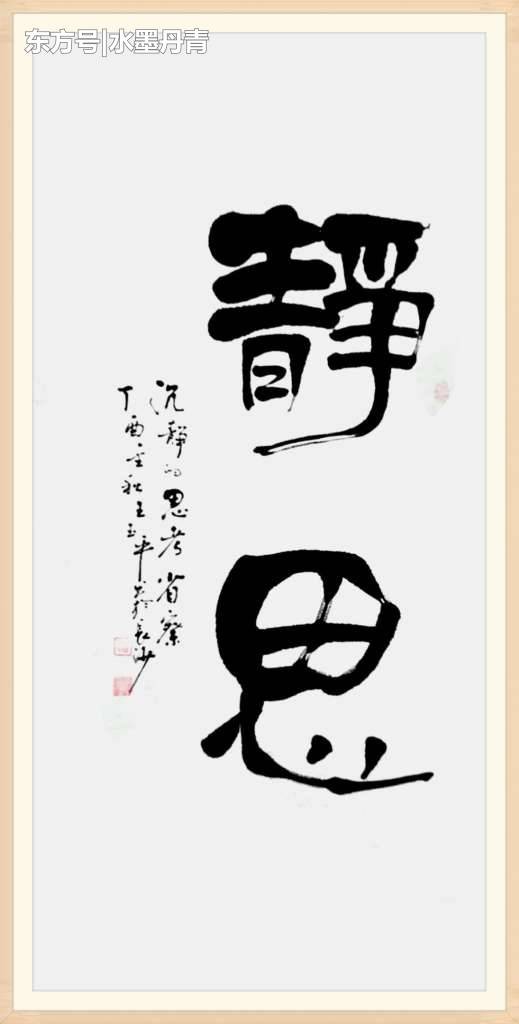 东方号|水墨丹青
靜思
沉靜的思考省察
丁酉金秋王玉平書於長沙